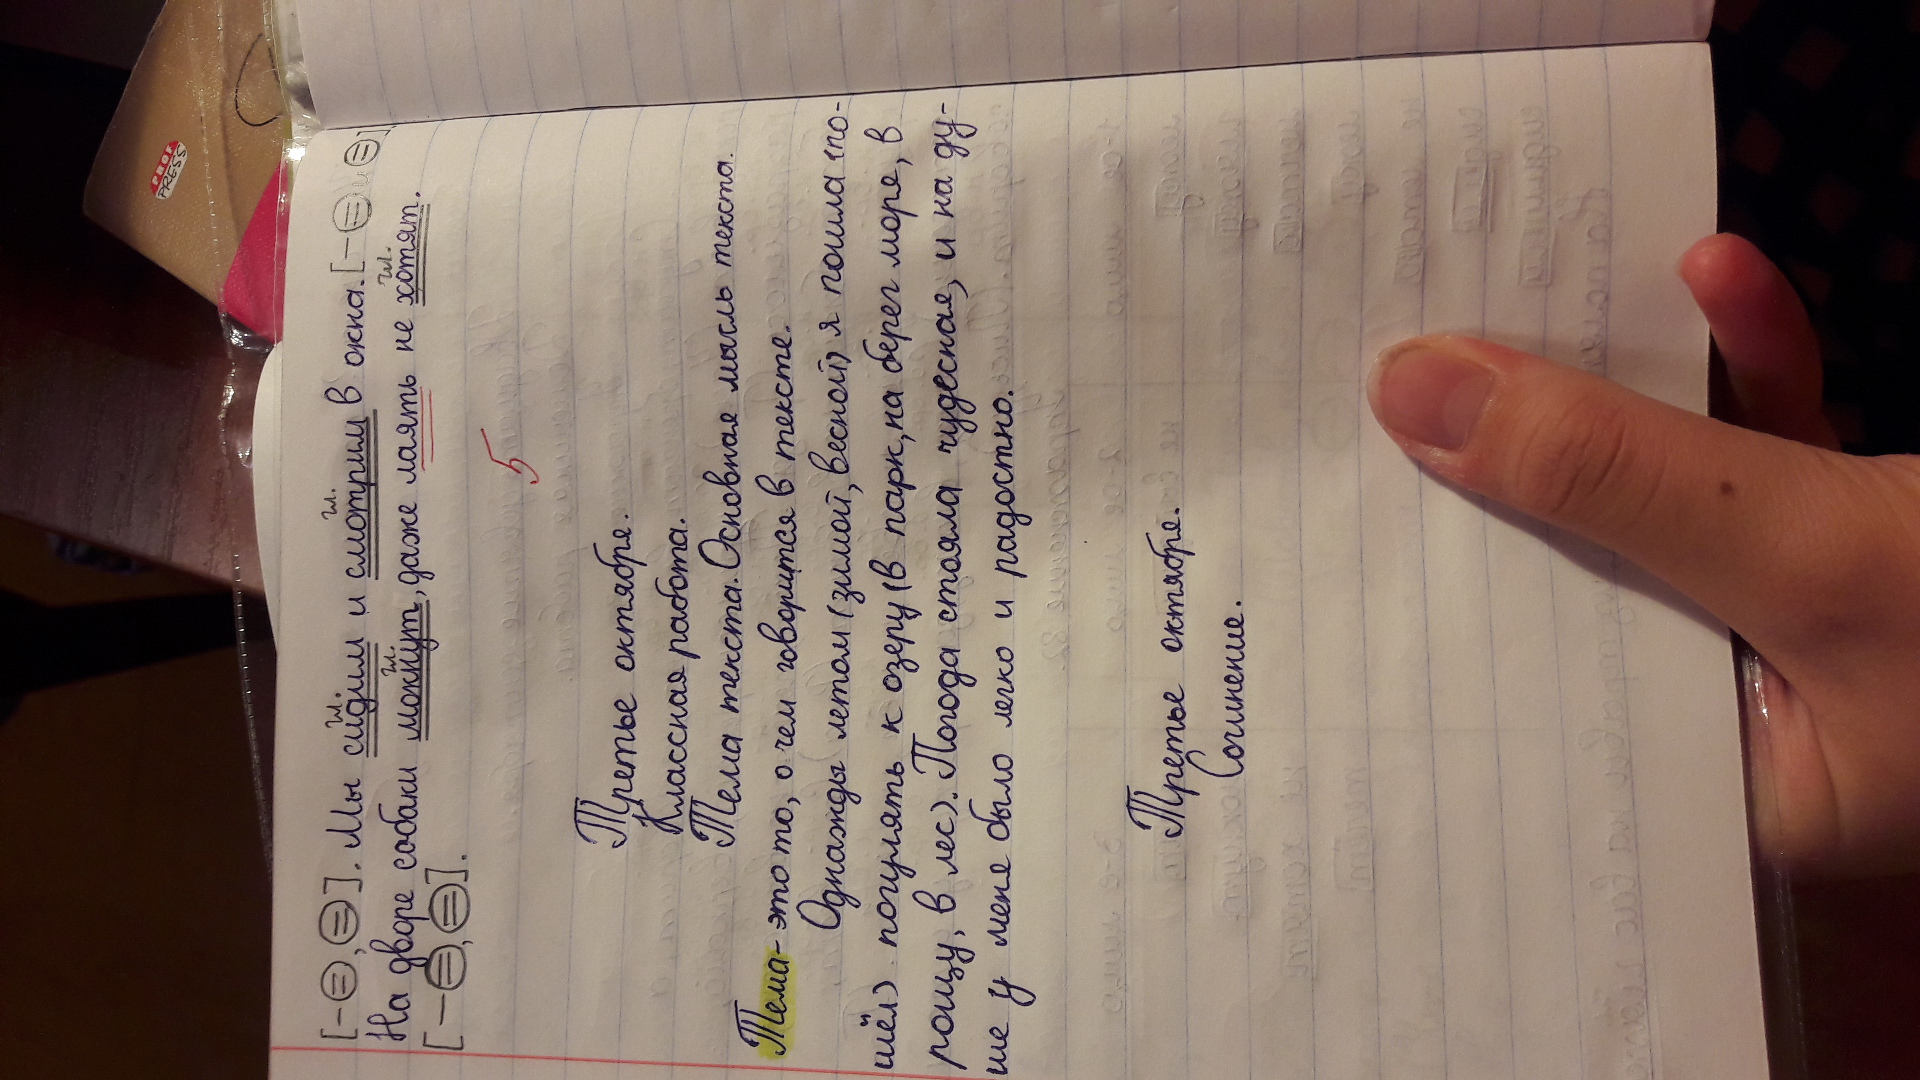 PROF
PRESS
[-=,=]. Мы сидим и смотрим в окна. [-= и =]
гл. гл.
На дворе собаки мокнут, даже лаять не хотят.
гл. гл.
[-=,=].
5
Третье октября.
Классная работа.
Тема текста. Основная мысль текста.
Тема - это то, о чем говорится в тексте.
Однажды летом (зимой, весной) я пошла (по-
шёл) погулять к озеру (в парк, на берег море, в
рощу, в лес). Погода стояла чудесная, и на ду-
ше у меня было легко и радостно.
Третье октября.
Сочинение.